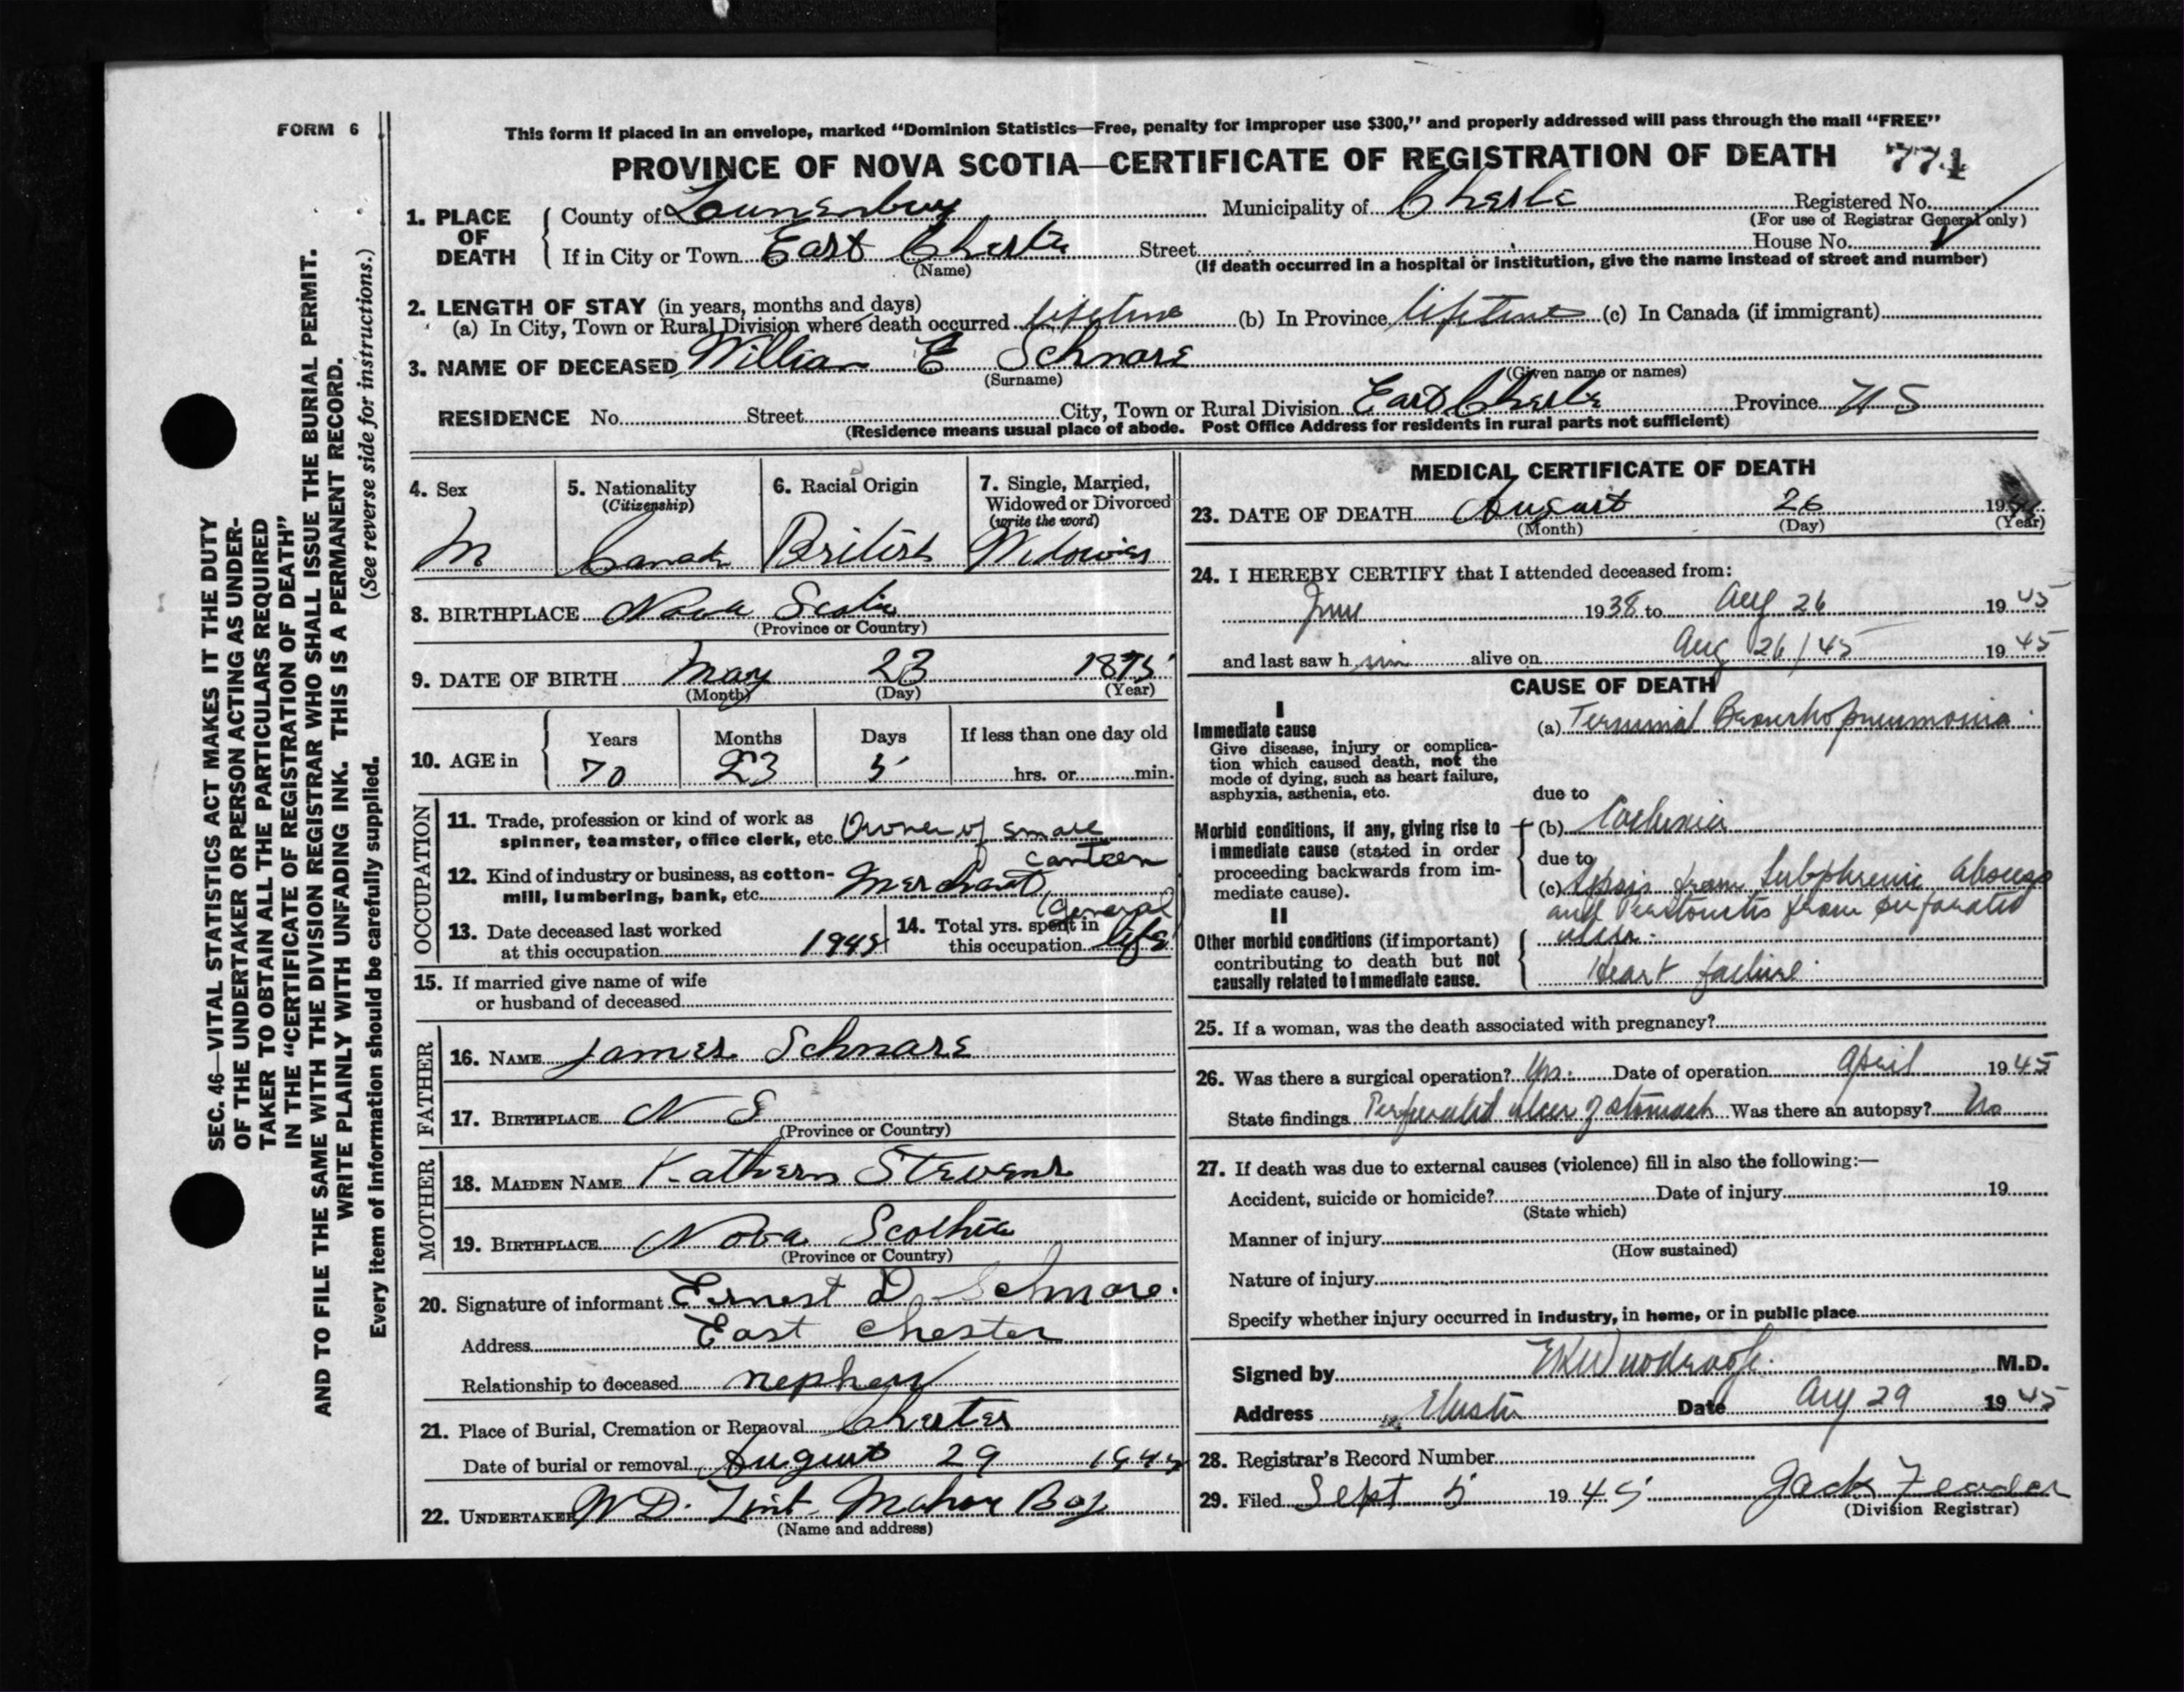 FORM 6
This form if placed in an envelope, marked “Dominion Statistics—Free, penalty for improper use $300,” and properly addressed will pass through the mail “FREE”
PROVINCE OF NOVA SCOTIA—CERTIFICATE OF REGISTRATION OF DEATH 771
1. PLACE OF DEATH
County of Lunenburg Municipality of Cheste Registered No.
(For use of Registrar General only)
If in City or Town East Cheste Street House No.
(Name) (If death occurred in a hospital or institution, give the name instead of street and number)
2. LENGTH OF STAY (in years, months and days)
(a) In City, Town or Rural Division where death occurred lifetime (b) In Province lifetime (c) In Canada (if immigrant)
3. NAME OF DECEASED William E Schnare
(Surname) (Given name or names)
RESIDENCE No. Street City, Town or Rural Division East Cheste Province NS
(Residence means usual place of abode. Post Office Address for residents in rural parts not sufficient)
4. Sex M
5. Nationality (Citizenship) Canada
6. Racial Origin British
7. Single, Married, Widowed or Divorced (write the word) Widower
8. BIRTHPLACE Nova Scotia
(Province or Country)
9. DATE OF BIRTH May 23 1875
(Month) (Day) (Year)
10. AGE in Years Months Days If less than one day old
70 23 5 hrs. or min.
OCCUPATION
11. Trade, profession or kind of work as
spinner, teamster, office clerk, etc. Owner of small
canteen
12. Kind of industry or business, as cotton-
mill, lumbering, bank, etc. Merchant
(General)
13. Date deceased last worked
at this occupation 1945
14. Total yrs. spent in
this occupation life
15. If married give name of wife
or husband of deceased
FATHER
16. NAME James Schnare
17. BIRTHPLACE N S
(Province or Country)
MOTHER
18. MAIDEN NAME Kathern Stevens
19. BIRTHPLACE Nova Scothia
(Province or Country)
20. Signature of informant Ernest D Schnare.
Address East Chester
Relationship to deceased nephew
21. Place of Burial, Cremation or Removal Chester
Date of burial or removal August 29 1945
22. UNDERTAKER W D. Zint Mahon Bay
(Name and address)
MEDICAL CERTIFICATE OF DEATH
23. DATE OF DEATH August 26 19
(Month) (Day) (Year)
24. I HEREBY CERTIFY that I attended deceased from:
June 1938 to Aug 26 1945
and last saw him alive on Aug 26/45 1945
CAUSE OF DEATH
I
Immediate cause
Give disease, injury or complica-
tion which caused death, not the
mode of dying, such as heart failure,
asphyxia, asthenia, etc.
(a) Terminal Bronchopneumonia
due to
Morbid conditions, if any, giving rise to
immediate cause (stated in order
proceeding backwards from im-
mediate cause).
(b)
due to
(c) Sepsis from Subphrenic Abscess
and Peritonitis from perforated
ulcer.
II
Other morbid conditions (if important)
contributing to death but not
causally related to immediate cause.
Heart failure
25. If a woman, was the death associated with pregnancy?
26. Was there a surgical operation? Yes. Date of operation April 1945
State findings Perforated ulcer of stomach Was there an autopsy? No
27. If death was due to external causes (violence) fill in also the following:—
Accident, suicide or homicide? Date of injury 19
(State which)
Manner of injury
(How sustained)
Nature of injury
Specify whether injury occurred in industry, in home, or in public place
Signed by M.D.
Address Chester Date Aug 29 1945
28. Registrar's Record Number
29. Filed Sept 5 1945 Jack
(Division Registrar)
SEC. 46—VITAL STATISTICS ACT MAKES IT THE DUTY
OF THE UNDERTAKER OR PERSON ACTING AS UNDER-
TAKER TO OBTAIN ALL THE PARTICULARS REQUIRED
IN THE “CERTIFICATE OF REGISTRATION OF DEATH”
AND TO FILE THE SAME WITH THE DIVISION REGISTRAR WHO SHALL ISSUE THE BURIAL PERMIT.
WRITE PLAINLY WITH UNFADING INK. THIS IS A PERMANENT RECORD.
(See reverse side for instructions.)
Every item of information should be carefully supplied.